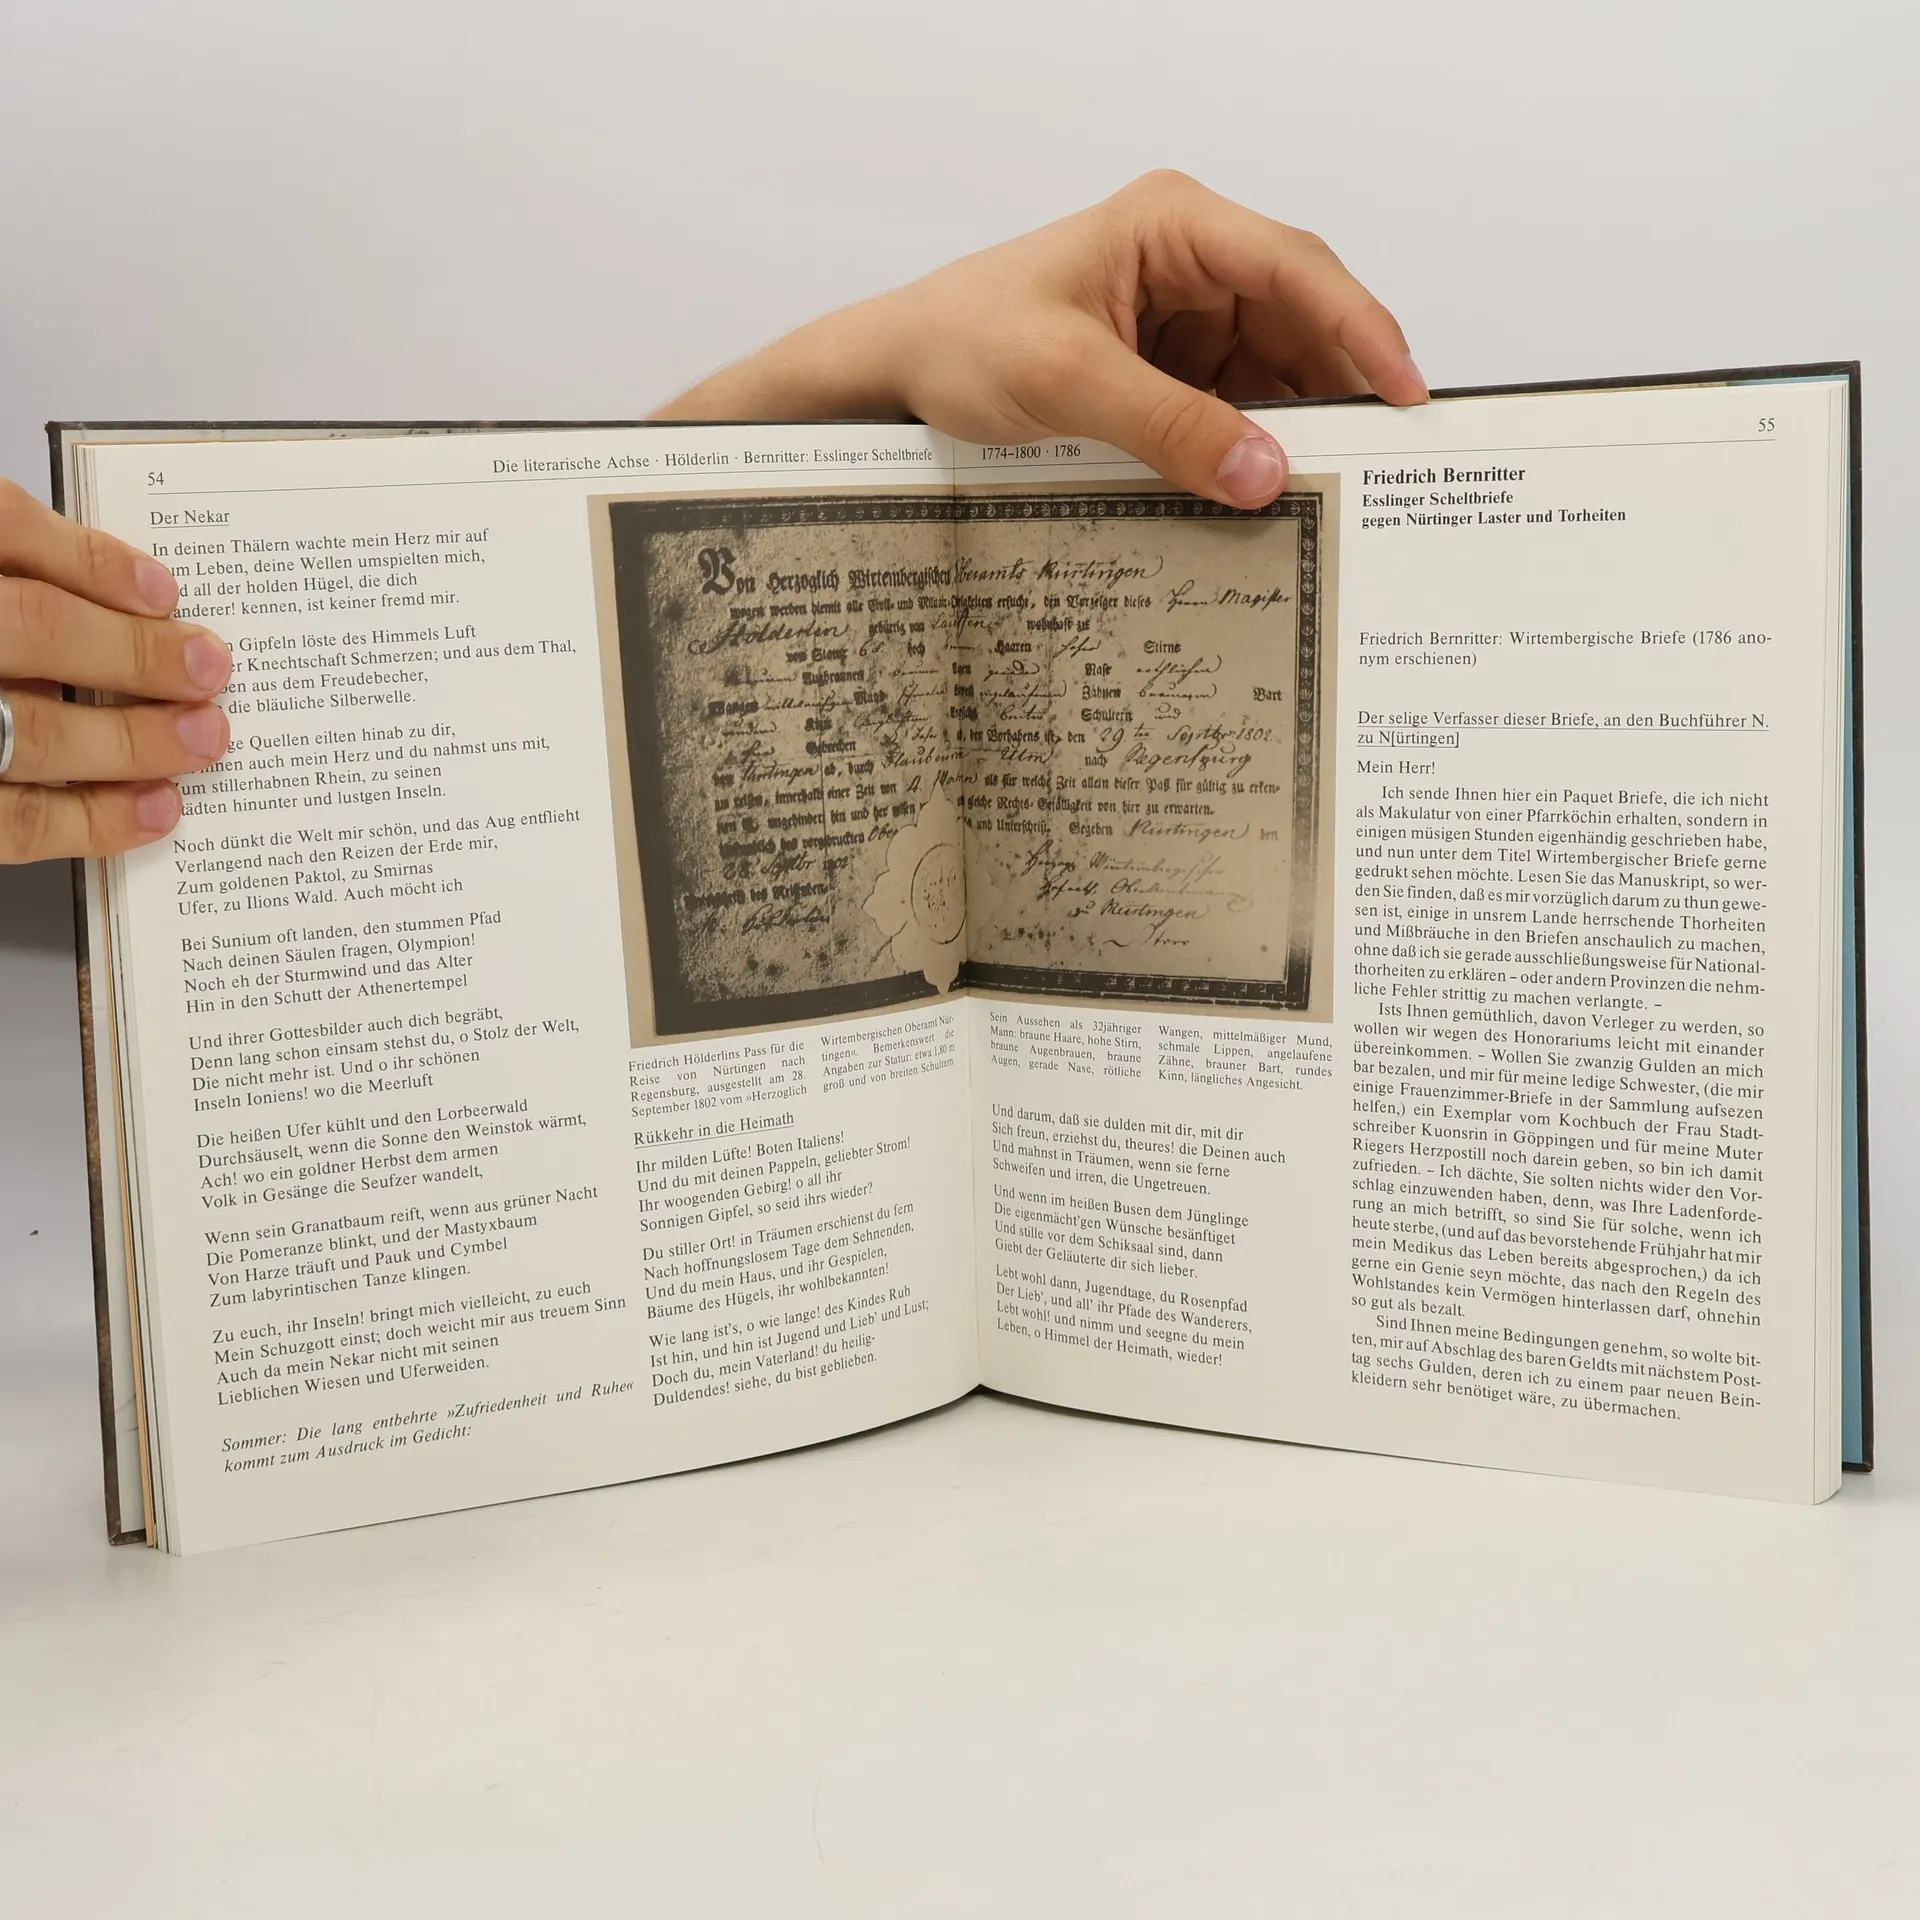 54
Die literarische Achse · Hölderlin · Bernritter: Esslinger Scheltbriefe
Der Nekar
In deinen Thälern wachte mein Herz mir auf
um Leben, deine Wellen umspielten mich,
d all der holden Hügel, die dich
anderer! kennen, ist keiner fremd mir.
n Gipfeln löste des Himmels Luft
er Knechtschaft Schmerzen; und aus dem Thal,
en aus dem Freudebecher,
die bläuliche Silberwelle.
ge Quellen eilten hinab zu dir,
nen auch mein Herz und du nahmst uns mit,
Zum stillerhabnen Rhein, zu seinen
tädten hinunter und lustgen Inseln.
Noch dünkt die Welt mir schön, und das Aug entflieht
Verlangend nach den Reizen der Erde mir,
Zum goldenen Paktol, zu Smirnas
Ufer, zu Ilions Wald. Auch möcht ich
Bei Sunium oft landen, den stummen Pfad
Nach deinen Säulen fragen, Olympion!
Noch eh der Sturmwind und das Alter
Hin in den Schutt der Athenertempel
Und ihrer Gottesbilder auch dich begräbt,
Denn lang schon einsam stehst du, o Stolz der Welt,
Die nicht mehr ist. Und o ihr schönen
Inseln Ioniens! wo die Meerluft
Die heißen Ufer kühlt und den Lorbeerwald
Durchsäuselt, wenn die Sonne den Weinstok wärmt,
Ach! wo ein goldner Herbst dem armen
Volk in Gesänge die Seufzer wandelt,
Wenn sein Granatbaum reift, wenn aus grüner Nacht
Die Pomeranze blinkt, und der Mastyxbaum
Von Harze träuft und Pauk und Cymbel
Zum labyrintischen Tanze klingen.
Zu euch, ihr Inseln! bringt mich vielleicht, zu euch
Mein Schuzgott einst; doch weicht mir aus treuem Sinn
Auch da mein Nekar nicht mit seinen
Lieblichen Wiesen und Uferweiden.
Sommer: Die lang entbehrte »Zufriedenheit und Ruhe«
kommt zum Ausdruck im Gedicht:
Von Herzoglich Wirtembergischen Oberamts Nürtingen
wegen werden hiemit alle Civil- und Militär-Obrigkeiten ersucht, den Vorzeiger dieses Herrn Magister
Hölderlin gebürtig von Lauffen wohnhaft zu
von Statur 6 hoch braun Haaren hoher Stirne
braunen Augbraunen braun Augen gerader Nase röthlichen
Wangen mittelmäsigen Mund schmalen angelaufenen Zähnen braunem Bart
rundem Kinn länglichten Gesicht breiten Schultern und
Gebrechen Jahr alt, der Vorhabens ist, den 29 ten Septbr 1802
von Nürtingen ab, durch Blaubeuren - Ulm nach Regenspurg
zu reisen, innerhalb einer Zeit von 4 als für welche Zeit allein dieser Paß für gültig zu erken-
nen ist, ungehindert hin und her reisen gleiche Rechts-Gefälligkeit von hier zu erwarten.
des vorgedruckten Ober und Unterschrift. Gegeben Nürtingen den
28. Septbr 1802
des Reisenden.
Herzogl. Wirtembergisches
zu Nürtingen
Friedrich Hölderlins Pass für die
Reise von Nürtingen nach
Regensburg, ausgestellt am 28.
September 1802 vom »Herzoglich
Wirtembergischen Oberamt Nür-
tingen«. Bemerkenswert die
Angaben zur Statur: etwa 1,80 m
groß und von breiten Schultern.
Rükkehr in die Heimath
Ihr milden Lüfte! Boten Italiens!
Und du mit deinen Pappeln, geliebter Strom!
Ihr woogenden Gebirg! o all ihr
Sonnigen Gipfel, so seid ihrs wieder?
Du stiller Ort! in Träumen erschienst du fern
Nach hoffnungslosem Tage dem Sehnenden,
Und du mein Haus, und ihr Gespielen,
Bäume des Hügels, ihr wohlbekannten!
Wie lang ist's, o wie lange! des Kindes Ruh
Ist hin, und hin ist Jugend und Lieb' und Lust;
Doch du, mein Vaterland! du heilig-
Duldendes! siehe, du bist geblieben.
1774–1800 · 1786
55
Sein Aussehen als 32jähriger
Mann: braune Haare, hohe Stirn,
braune Augenbrauen, braune
Augen, gerade Nase, rötliche
Wangen, mittelmäßiger Mund,
schmale Lippen, angelaufene
Zähne, brauner Bart, rundes
Kinn, längliches Angesicht.
Und darum, daß sie dulden mit dir, mit dir
Sich freun, erziehst du, theures! die Deinen auch
Und mahnst in Träumen, wenn sie ferne
Schweifen und irren, die Ungetreuen.
Und wenn im heißen Busen dem Jünglinge
Die eigenmächt'gen Wünsche besänftiget
Und stille vor dem Schiksaal sind, dann
Giebt der Geläuterte dir sich lieber.
Lebt wohl dann, Jugendtage, du Rosenpfad
Der Lieb', und all' ihr Pfade des Wanderers,
Lebt wohl! und nimm und seegne du mein
Leben, o Himmel der Heimath, wieder!
Friedrich Bernritter
Esslinger Scheltbriefe
gegen Nürtinger Laster und Torheiten
Friedrich Bernritter: Wirtembergische Briefe (1786 ano-
nym erschienen)
Der selige Verfasser dieser Briefe, an den Buchführer N.
zu N[ürtingen]
Mein Herr!
Ich sende Ihnen hier ein Paquet Briefe, die ich nicht
als Makulatur von einer Pfarrköchin erhalten, sondern in
einigen müsigen Stunden eigenhändig geschrieben habe,
und nun unter dem Titel Wirtembergischer Briefe gerne
gedrukt sehen möchte. Lesen Sie das Manuskript, so wer-
den Sie finden, daß es mir vorzüglich darum zu thun gewe-
sen ist, einige in unsrem Lande herrschende Thorheiten
und Mißbräuche in den Briefen anschaulich zu machen,
ohne daß ich sie gerade ausschließungsweise für National-
thorheiten zu erklären – oder andern Provinzen die nehm-
liche Fehler strittig zu machen verlangte. –
Ists Ihnen gemüthlich, davon Verleger zu werden, so
wollen wir wegen des Honorariums leicht mit einander
übereinkommen. – Wollen Sie zwanzig Gulden an mich
bar bezalen, und mir für meine ledige Schwester, (die mir
einige Frauenzimmer-Briefe in der Sammlung aufsezen
helfen,) ein Exemplar vom Kochbuch der Frau Stadt-
schreiber Kuonsrin in Göppingen und für meine Muter
Riegers Herzpostill noch darein geben, so bin ich damit
zufrieden. – Ich dächte, Sie solten nichts wider den Vor-
schlag einzuwenden haben, denn, was Ihre Ladenforde-
rung an mich betrifft, so sind Sie für solche, wenn ich
heute sterbe, (und auf das bevorstehende Frühjahr hat mir
mein Medikus das Leben bereits abgesprochen,) da ich
gerne ein Genie seyn möchte, das nach den Regeln des
Wohlstandes kein Vermögen hinterlassen darf, ohnehin
so gut als bezalt.
Sind Ihnen meine Bedingungen genehm, so wolte bit-
ten, mir auf Abschlag des baren Geldts mit nächstem Post-
tag sechs Gulden, deren ich zu einem paar neuen Bein-
kleidern sehr benötiget wäre, zu übermachen.